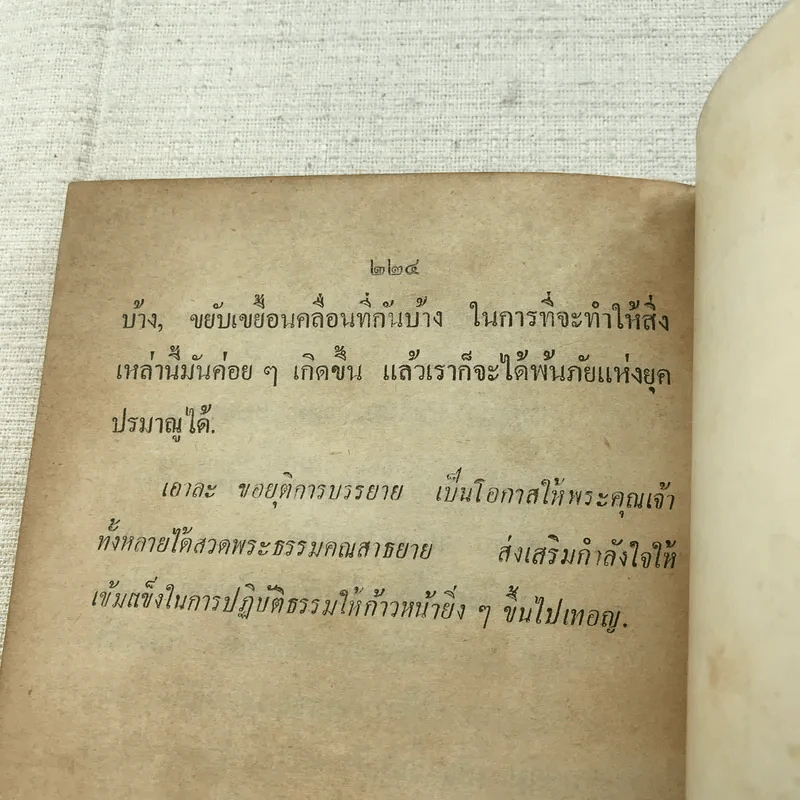 ๒๒๔
บ้าง, ขยับเขยื้อนคลื่อนที่กันบ้าง ในการที่จะทำให้สิ่ง
เหล่านี้มันค่อย ๆ เกิดขึ้น แล้วเราก็จะได้พ้นภัยแห่งยุค
ปรมาณูได้.
เอาละ ขอยุติการบรรยาย เป็นโอกาสให้พระคุณเจ้า
ทั้งหลายได้สวดพระธรรมคณสาธยาย ส่งเสริมกำลังใจให้
เข้มแข็งในการปฏิบัติธรรมให้ก้าวหน้ายิ่ง ๆ ขึ้นไปเทอญ.